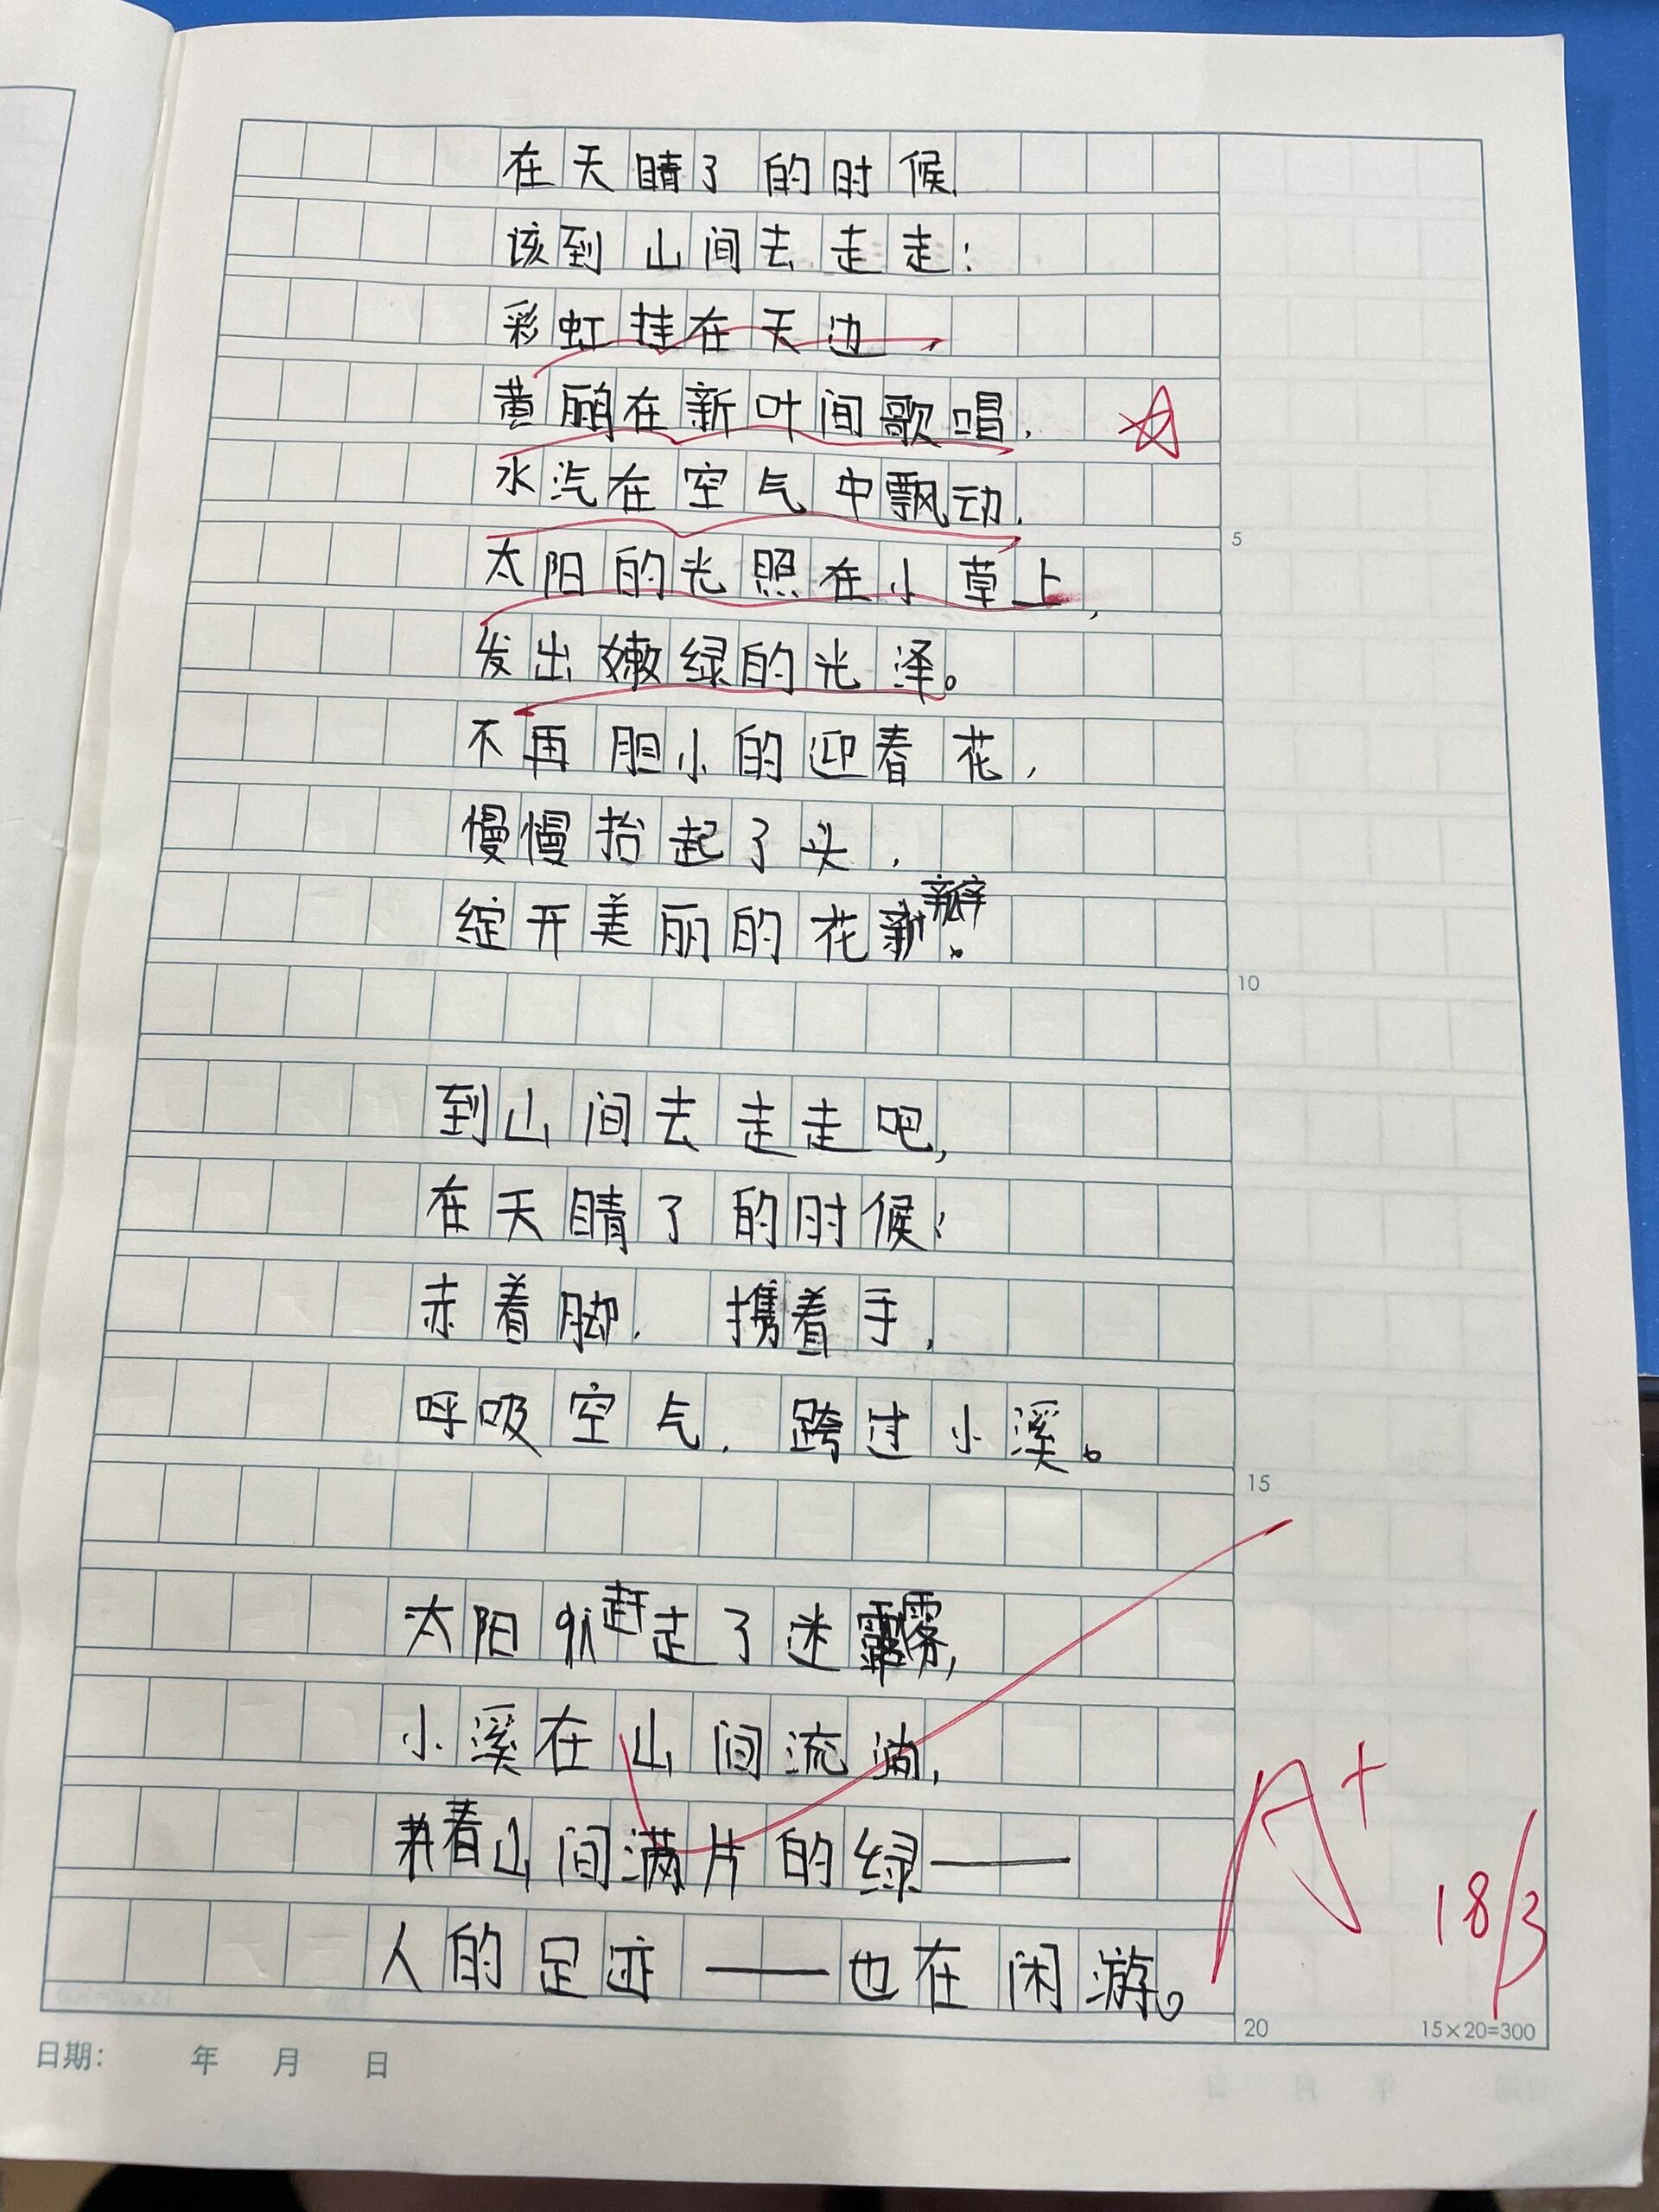 在天睛了的时候,
该到山间去走走:
彩虹挂在天边
黄鹂在新叶间歌唱,
水汽在空气中飘动,
太阳的光照在小草上,
发出嫩绿的光泽。
不再胆小的迎春花,
慢慢抬起了头,
绽开美丽的花瓣。
到山间去走走吧,
在天睛了的时候:
赤着脚,携着手,
呼吸空气,跨过小溪。
太阳赶走了迷雾,
小溪在山间流淌,
看山间满片的绿——
人的足迹——也在闲游。
5
10
15
20
A+
18/3
15×20=300
日期: 年 月 日